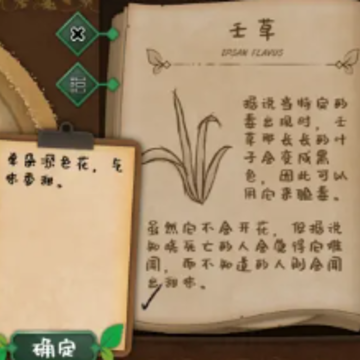 壬草
IPSAN FLAVUS
据说当特定的
毒出现时，壬
草那长长的叶
子会变成黑
色，因此可以
用它来验毒。
虽然它不会开花，但据说
知晓死亡的人会觉得它难
闻，而不知道的人则会闻
出甜味。
单朵深色花，气
味香甜。
确定